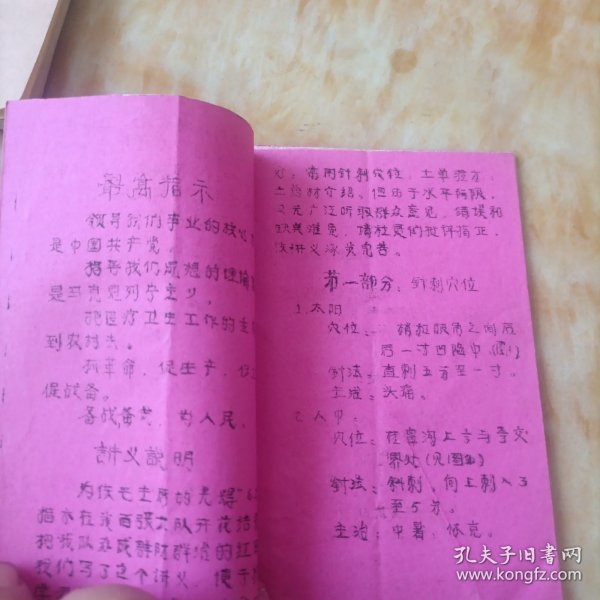 最高指示
领导我们事业的核心
是中国共产党。
指导我们思想的理论
是马克思列宁主义，
把医疗卫生工作的重
到农村去。
抓革命，促生产，促
促战备。
备战、备荒、为人民。
讲义说明
为使毛主席的光辉“6
指示在我西张大队开花结
把我队办成群防群治的红
我们写了这个讲义，便于
常用针刺穴位，土单验方，
土药材介绍。但由于水平有限，
又无广泛听取群众意见，错误和
缺点难免，请社员们批评指正，
使讲义逐步完善。
第一部分：针刺穴位
1.太阳
穴位：眉梢眼角之间后
后一寸凹陷中（图1）
针法：直刺五分至一寸。
主治：头痛。
2.人中
穴位：在鼻沟上1/3与2/3交
界处（见图2）
针法：斜刺、向上刺入3
至5分。
主治：中暑、休克。
孔夫子旧书网
www.kongfz.com